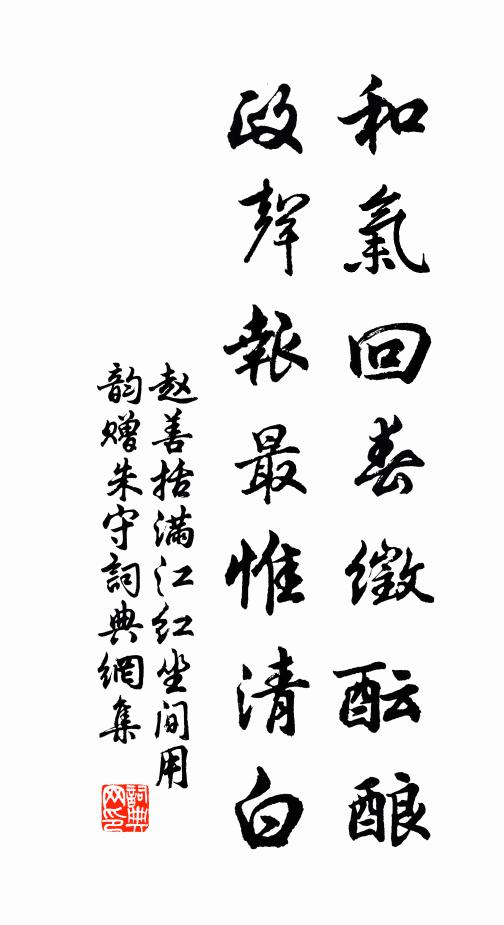 和氣回春徵酝酿
政聲報最惟清白
赵善括满江红坐间用
韵赠朱守詞典網集
詞典
网印